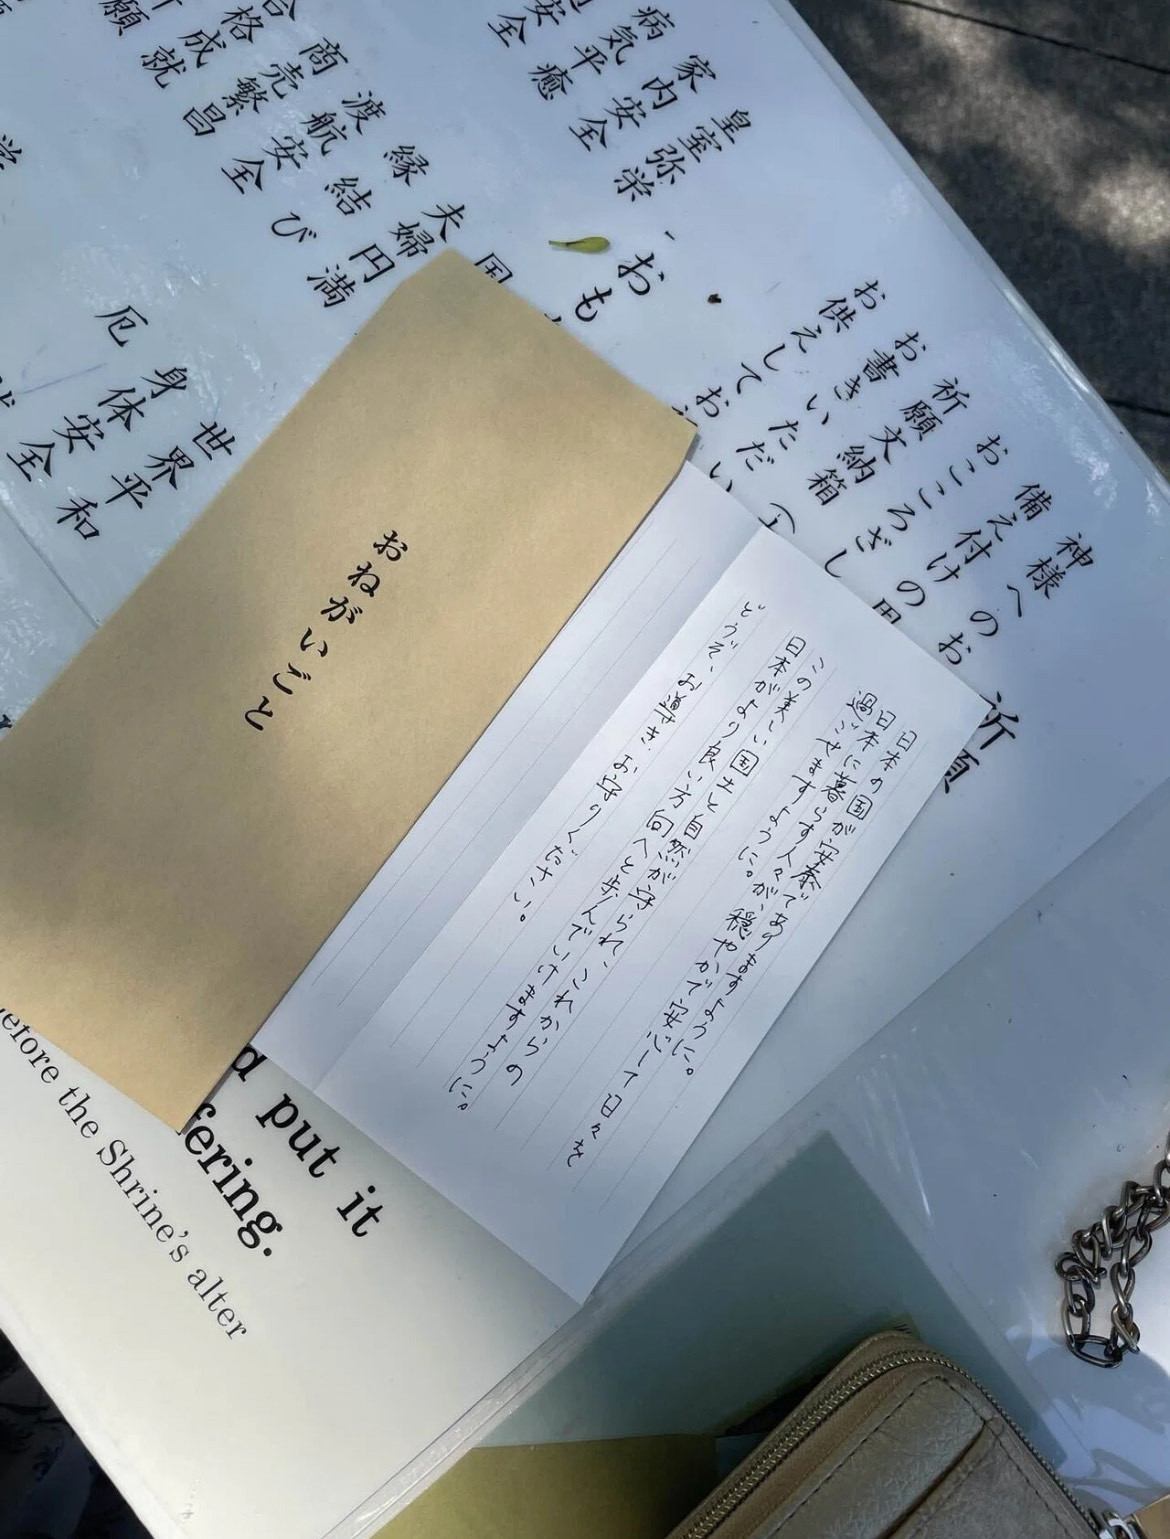 神様へのお祈願
備え付けの
おこころざしの用
祈願文納箱
お書きいただい
お供えしてお
おも
皇室弥栄
家内安全
病気平癒
国
夫婦円満
縁結び
渡航安全
商売繁昌
世界平和
身体安全
厄
おねがいごと
日本の国が安泰でありますように。
日本に暮らす人々が、穏やかで安心して日々を
過ごせますように。
この美しい国土と自然が守られ、これからの
日本がより良い方向へと歩んでいけますように。
どうぞ、お導き、お守りください。
put it
fering.
before the Shrine's alter